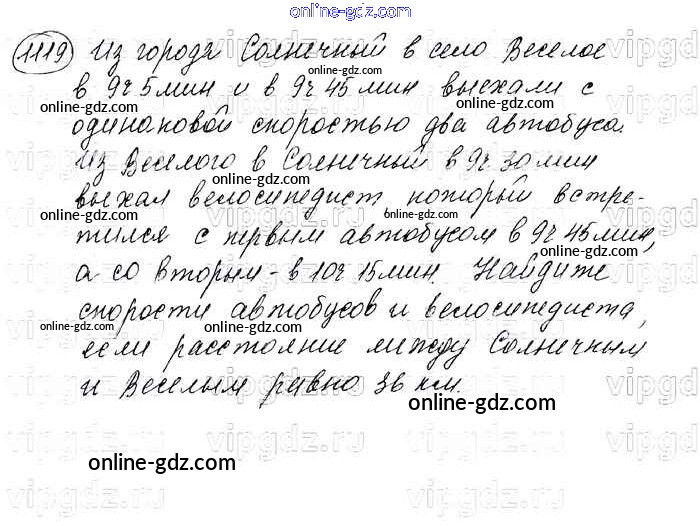 online-gdz.com
1119 Из города Солнечный в село Веселое
online-gdz.com
в 9ч 5мин и в 9ч 45мин выехали с
online-gdz.com
online-gdz.com
одинаковой скоростью два автобуса.
Из Веселого в Солнечный в 9ч 30мин
online-gdz.com
выехал велосипедист, который встре-
online-gdz.com
online-gdz.com
тился с первым автобусом в 9ч 45мин,
online-gdz.com
а со вторым - в 10ч 15мин. Найдите
online-gdz.com
скорости автобусов и велосипедиста,
online-gdz.com
online-gdz.com
если расстояние между Солнечным
и Веселым равно 36 км.
online-gdz.com
vipgdz.ru
online-gdz.com